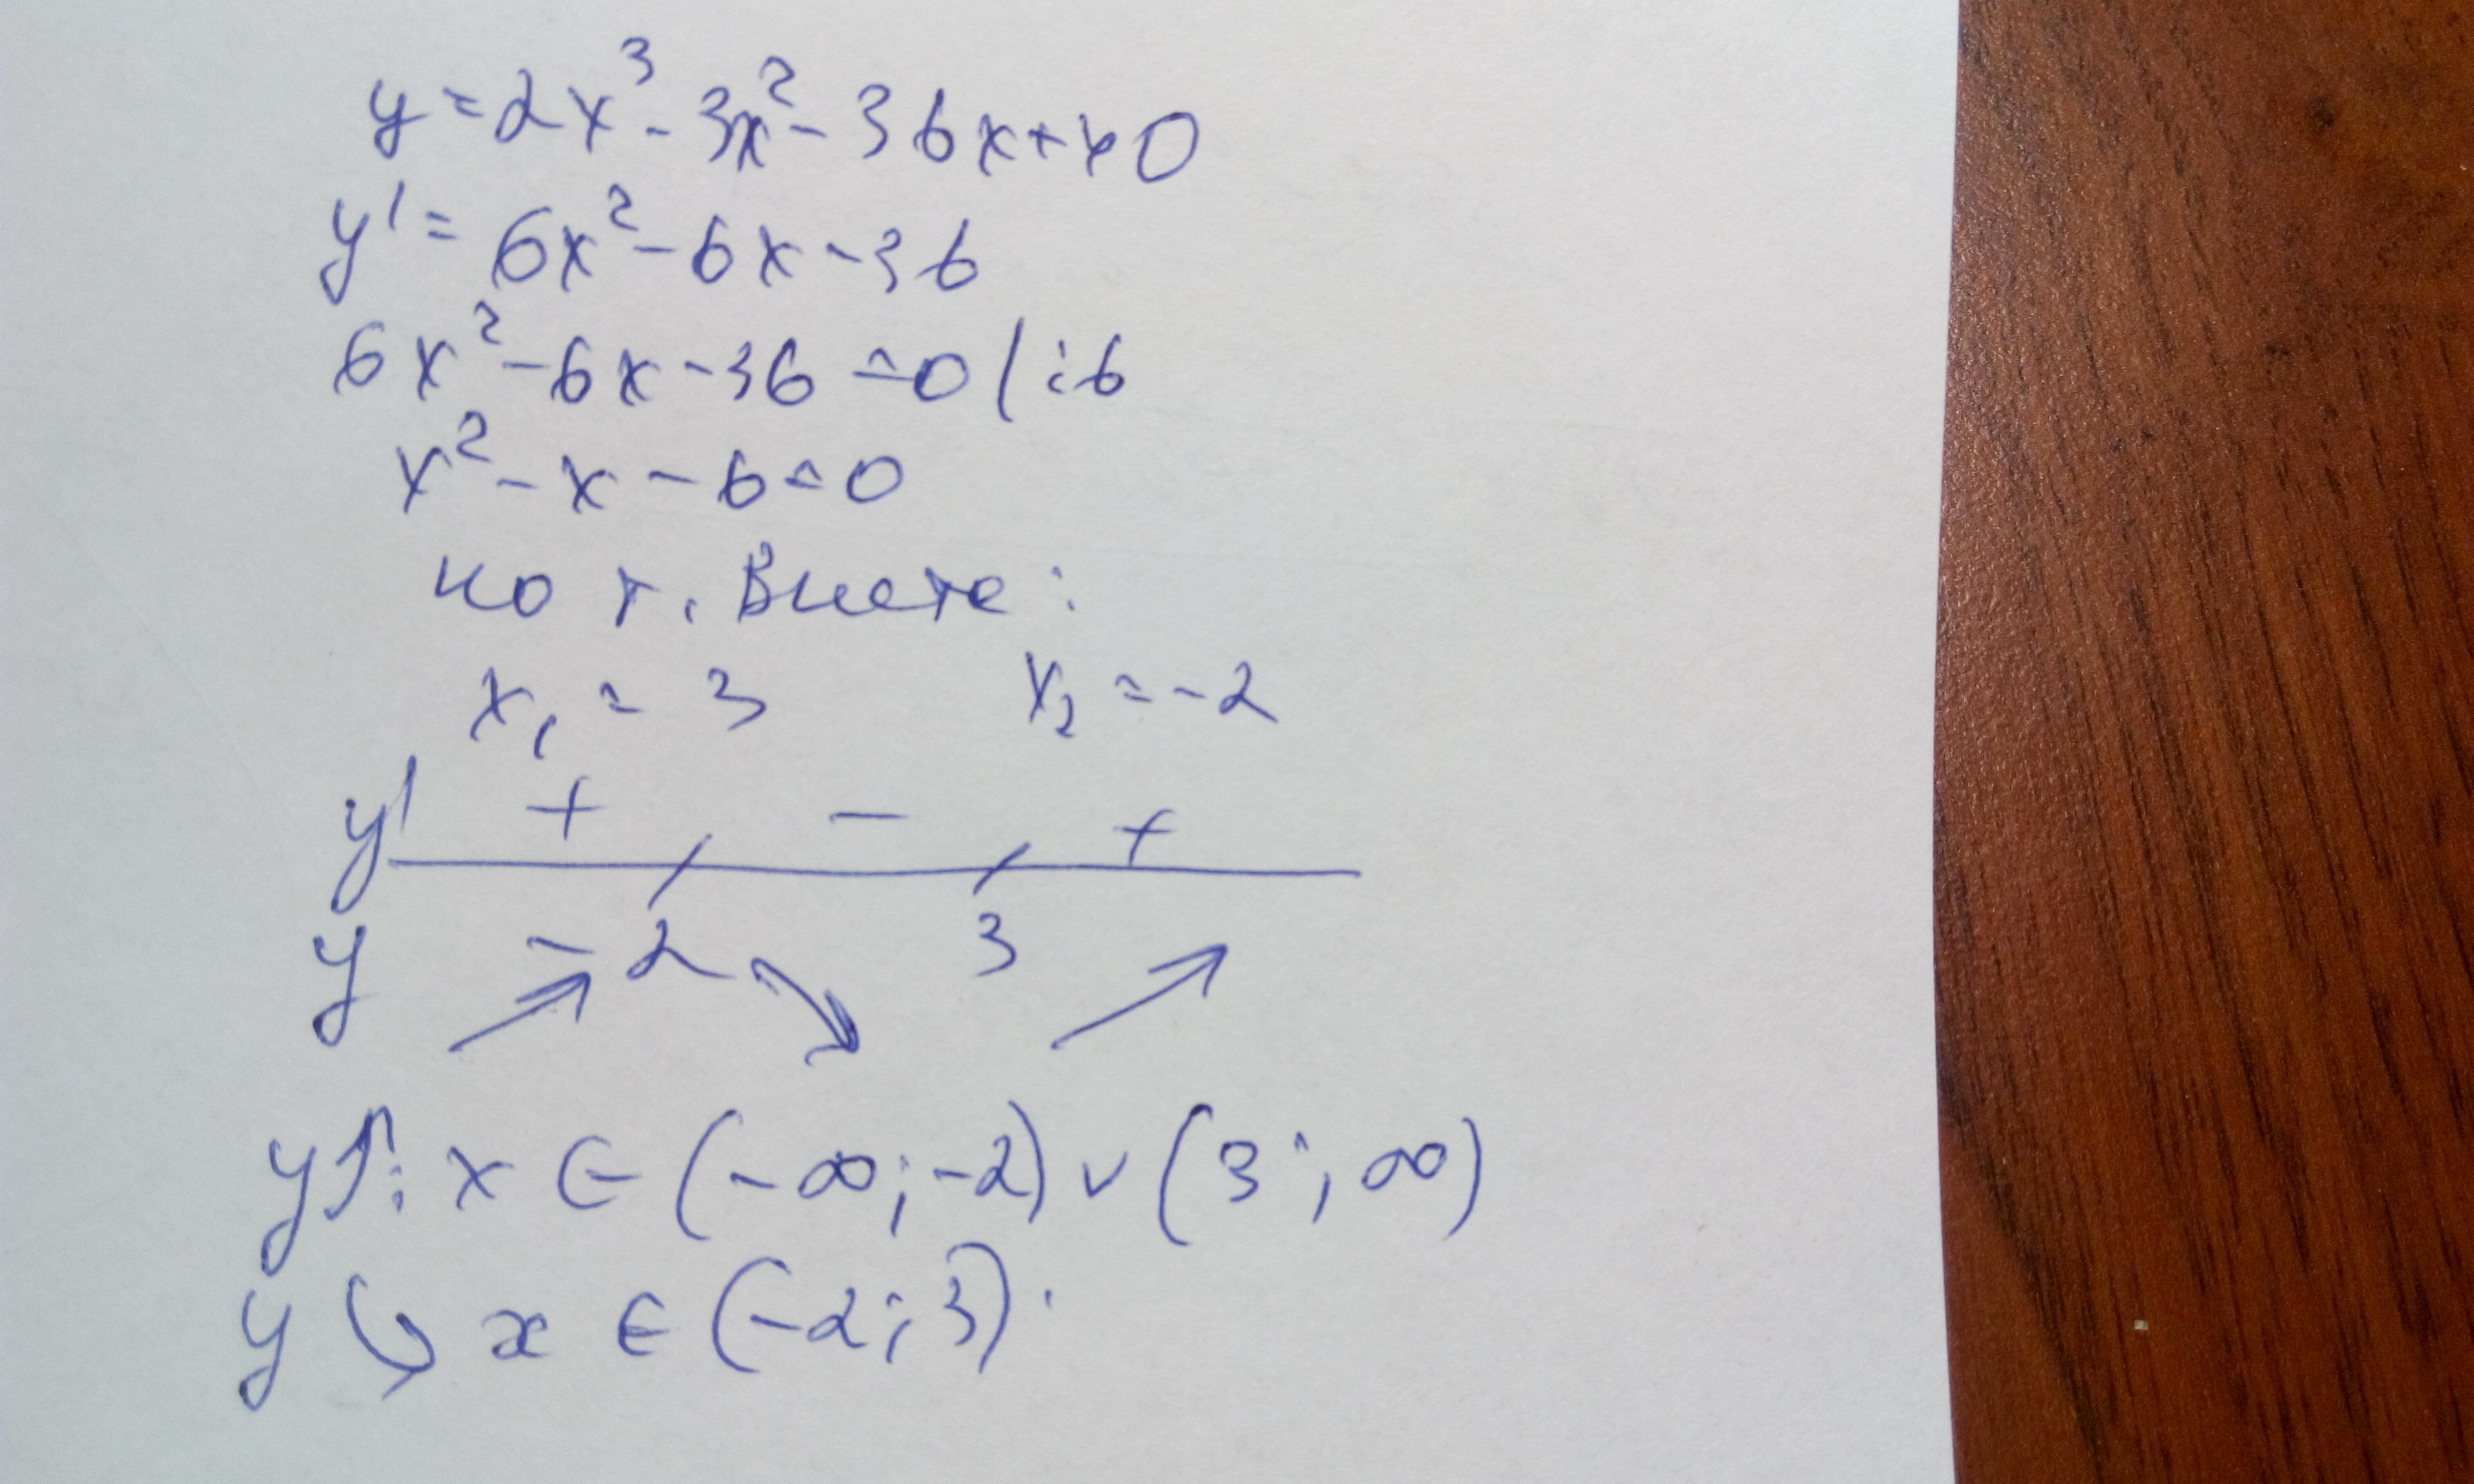 y = 2x³ - 3x² - 36x + 40
y' = 6x² - 6x - 36
6x² - 6x - 36 = 0 | :6
x² - x - 6 = 0
по т. Виета:
x₁ = 3 x₂ = -2
y' + - +
-2 3
y ↗ ↘ ↗
y↑: x ∈ (-∞; -2) ∪ (3; ∞)
y ↘ x ∈ (-2; 3).